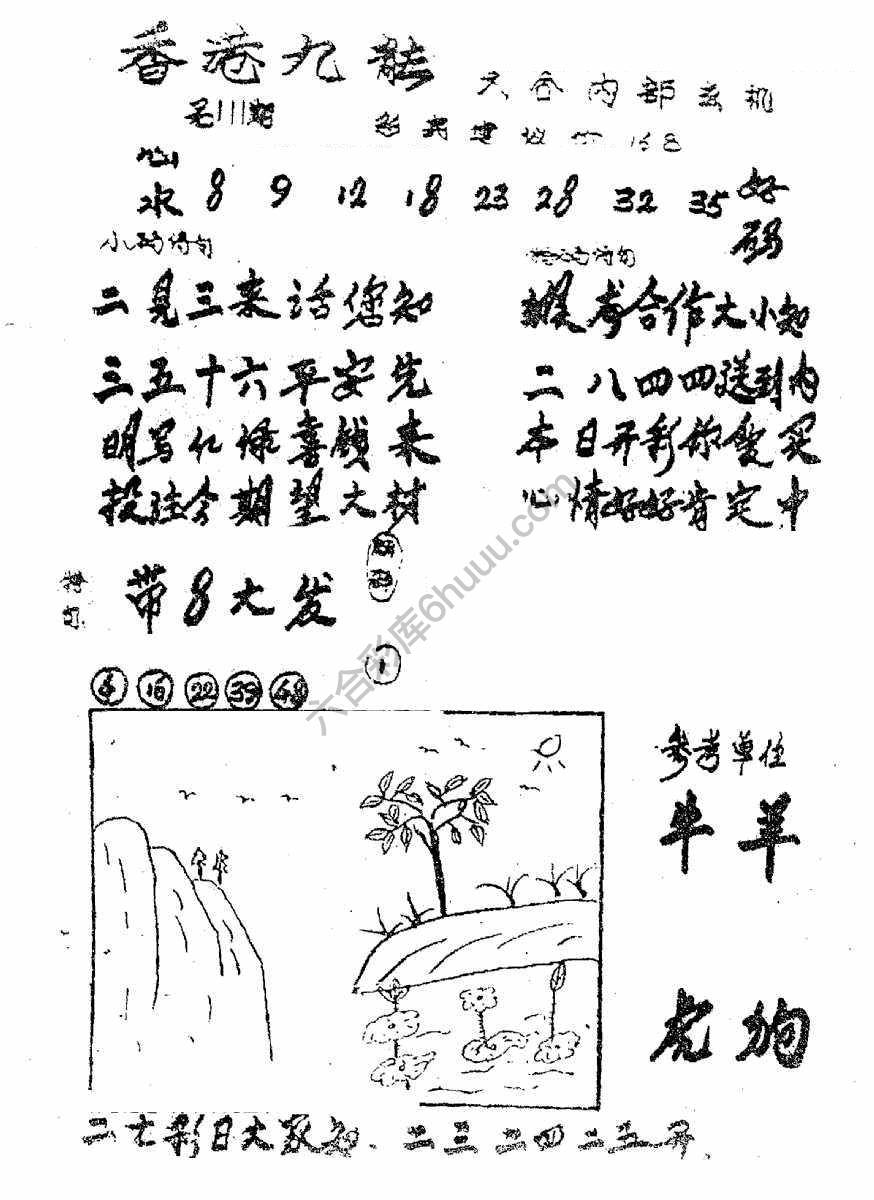 香港九龍
六合内部玄机
第111期
168
心水 8 9 12 18 23 28 32 35 好码
小码诗句
二見三来话您知
三五十六平安先
明写仁 喜 来
投注今期望大材
考合作大小知
二八四四送到内
本日开彩你爱买
心情好好肯定中
带8大发
1
4 16 22 39 48
六合彩库6huuu.com
参考单位
牛羊
虎狗
二七彩日大家知、二三二四二五开